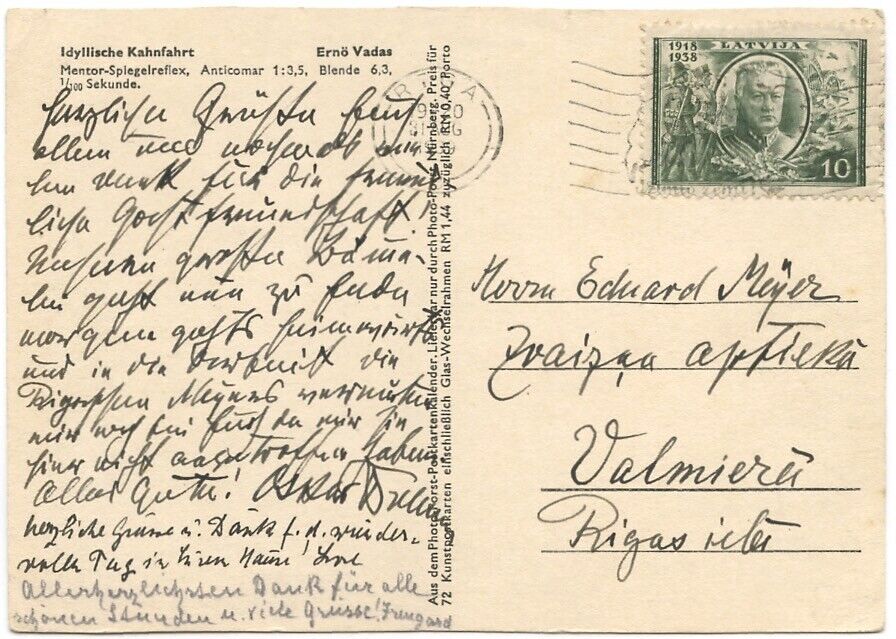 Idyllische Kahnfahrt Ernö Vadas
Mentor-Spiegelreflex, Anticomar 1:3,5, Blende 6,3,
1/100 Sekunde.
Herzliche Grüße Euch
allen und nochmals
Dank für die freund-
liche Gastfreundschaft!
Unsere große
geht nun zu Ende
morgen gehts heimwärts
und in die die
Rigaschen Meyers
wir Euch da wir sie
hier nicht angetroffen haben
Alles Gute! Oskar
herzliche Grüsse u. Dank f. d. wunder-
vollen Tag in Euren Haus!
Allerherzlichsten Dank für alle
schönen Stunden u. viele Grüsse! Irmgard
Aus dem Photo-Porst-Postkartenkalender. Lieferbar nur durch Photo-Porst, Nürnberg. Preis für
72 Kunstpostkarten einschließlich Glas-Wechselrahmen RM 1,44 zuzüglich RM 0,40 Porto
RIGA
1918
1938
LATVIJA
10
Herrn Eduard Meyer
Zvaizņa aptieka
Valmierā
Rigas ielā